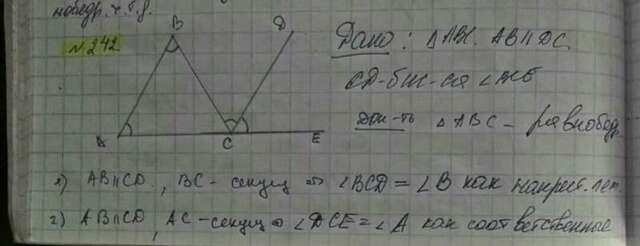 равнобедр. ч.т.д.
№242
B
D
A
C
E
Дано: △ABC. AB∥DC.
CD-бис-са ∠BCE
Док-ть △ABC – равнобед.
1) AB∥CD, BC - секущ ⇒ ∠BCD = ∠B как накрест.леж.
2) AB∥CD, AC - секущ ⇒ ∠DCE = ∠A как соответственные